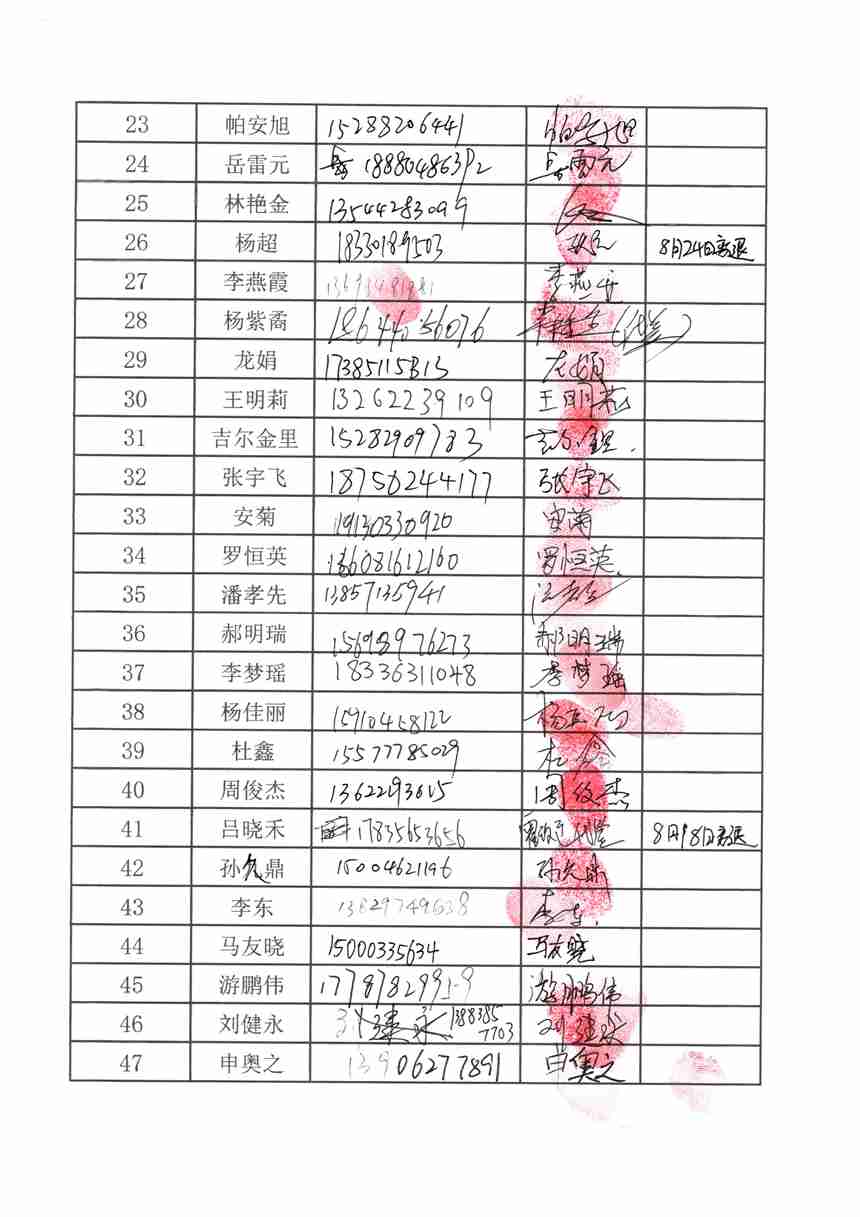 23 帕安旭 15288206441 帕安旭
24 岳雷元 岳雷元
25 林艳金 13544283099
26 杨超 18330189503 8月24日离退
27 李燕霞 李燕霞
28 杨紫矞 (代签)
29 龙娟 龙娟
30 王明莉 13262239109 王明莉
31 吉尔金里 15282909783
32 张宇飞 18756244177 张宇飞
33 安菊 19130330920 安菊
34 罗恒英 罗恒英
35 潘孝先 13857135941
36 郝明瑞 15698976273 郝明瑞
37 李梦瑶 18336311048 李梦瑶
38 杨佳丽 15910458122
39 杜鑫 15577785029 杜鑫
40 周俊杰 周俊杰
41 吕晓禾 17835653656 8月18日离退
42 孙允鼎 15004621196
43 李东 13629749638 李东
44 马友晓 15000335634 马友晓
45 游鹏伟 游鹏伟
46 刘健永 刘健永
47 申奥之 13906277891 申奥之